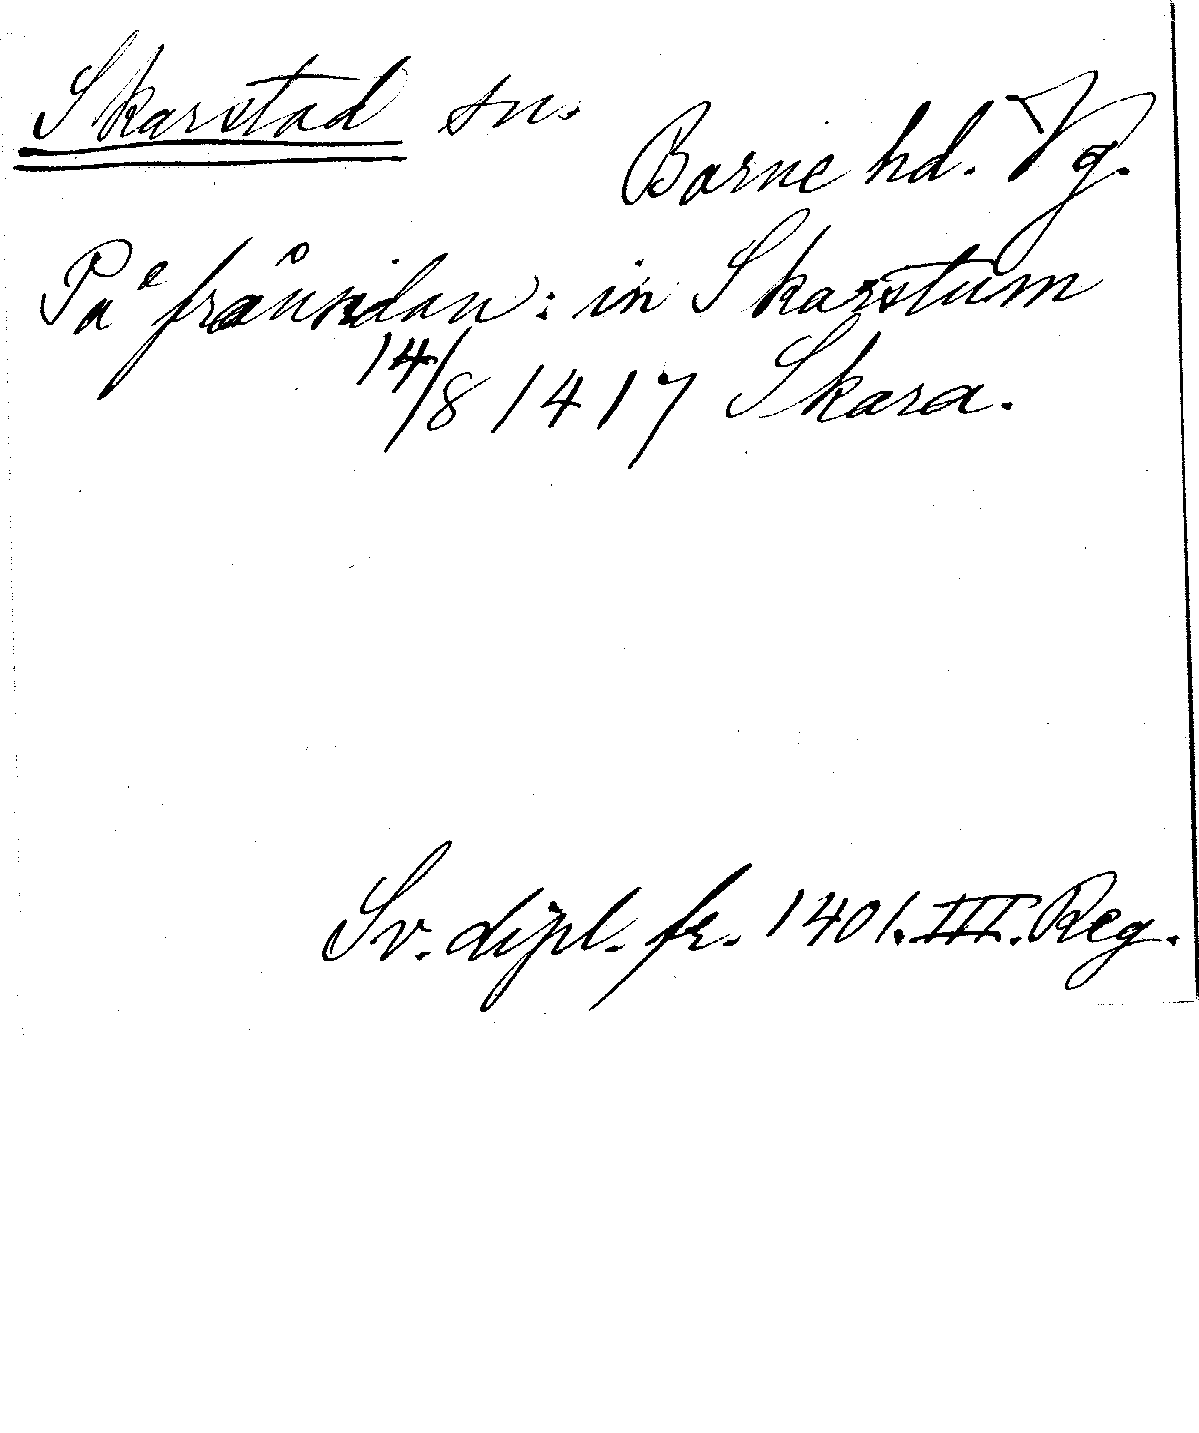 Skarstad sn.
Barne hd. Vg.
På frånsidan: in Skarstum
14/8 1417 Skara.
Sv. dipl. fr. 1401. III. Reg.